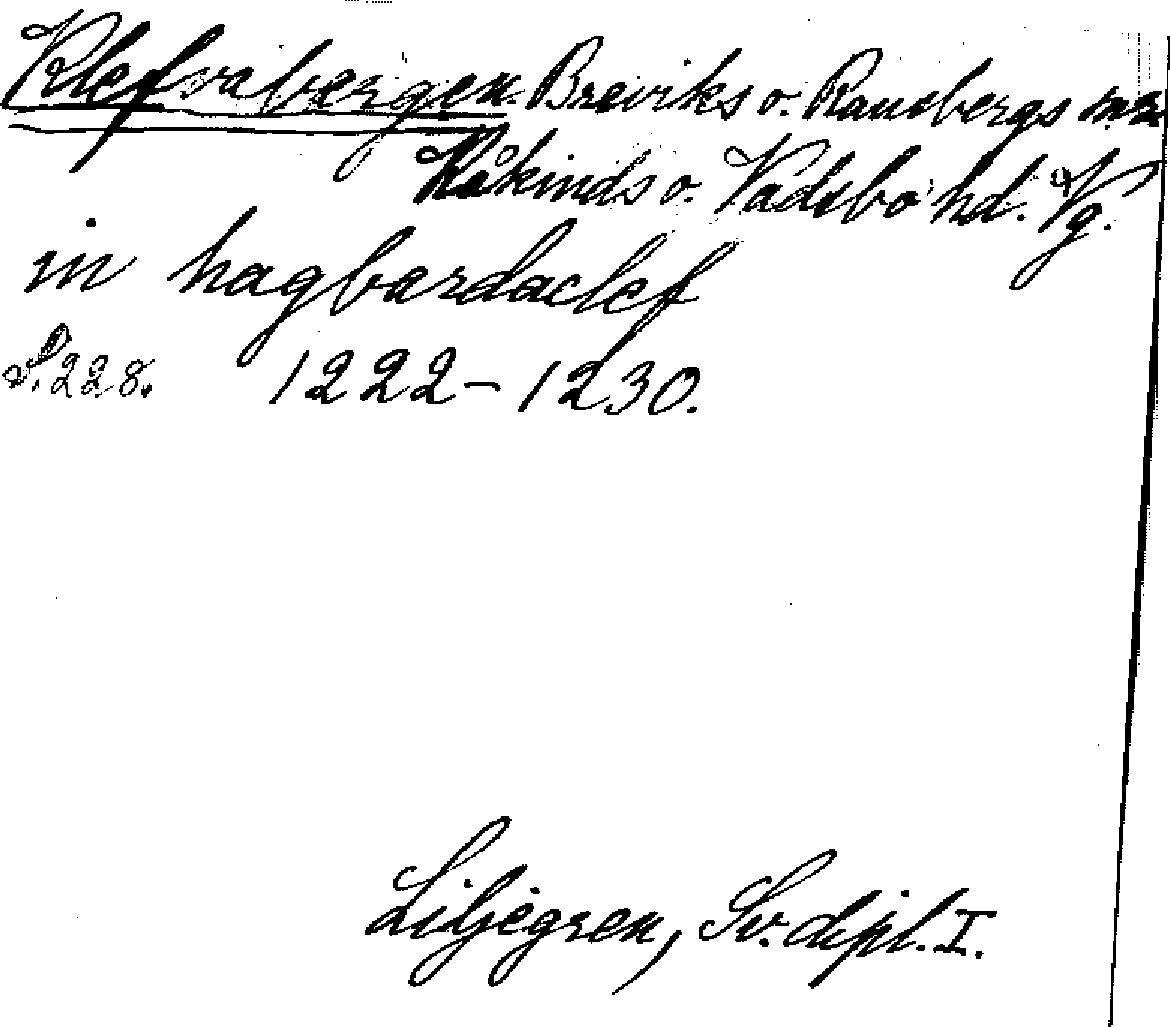 Klefvabergen Breviks o. Randbergs snr
Kåkinds o. Vadsbo hd. Vg.
in hagbardaclef
S. 228. 1222-1230.
Liljegren, Sv. dipl. I.